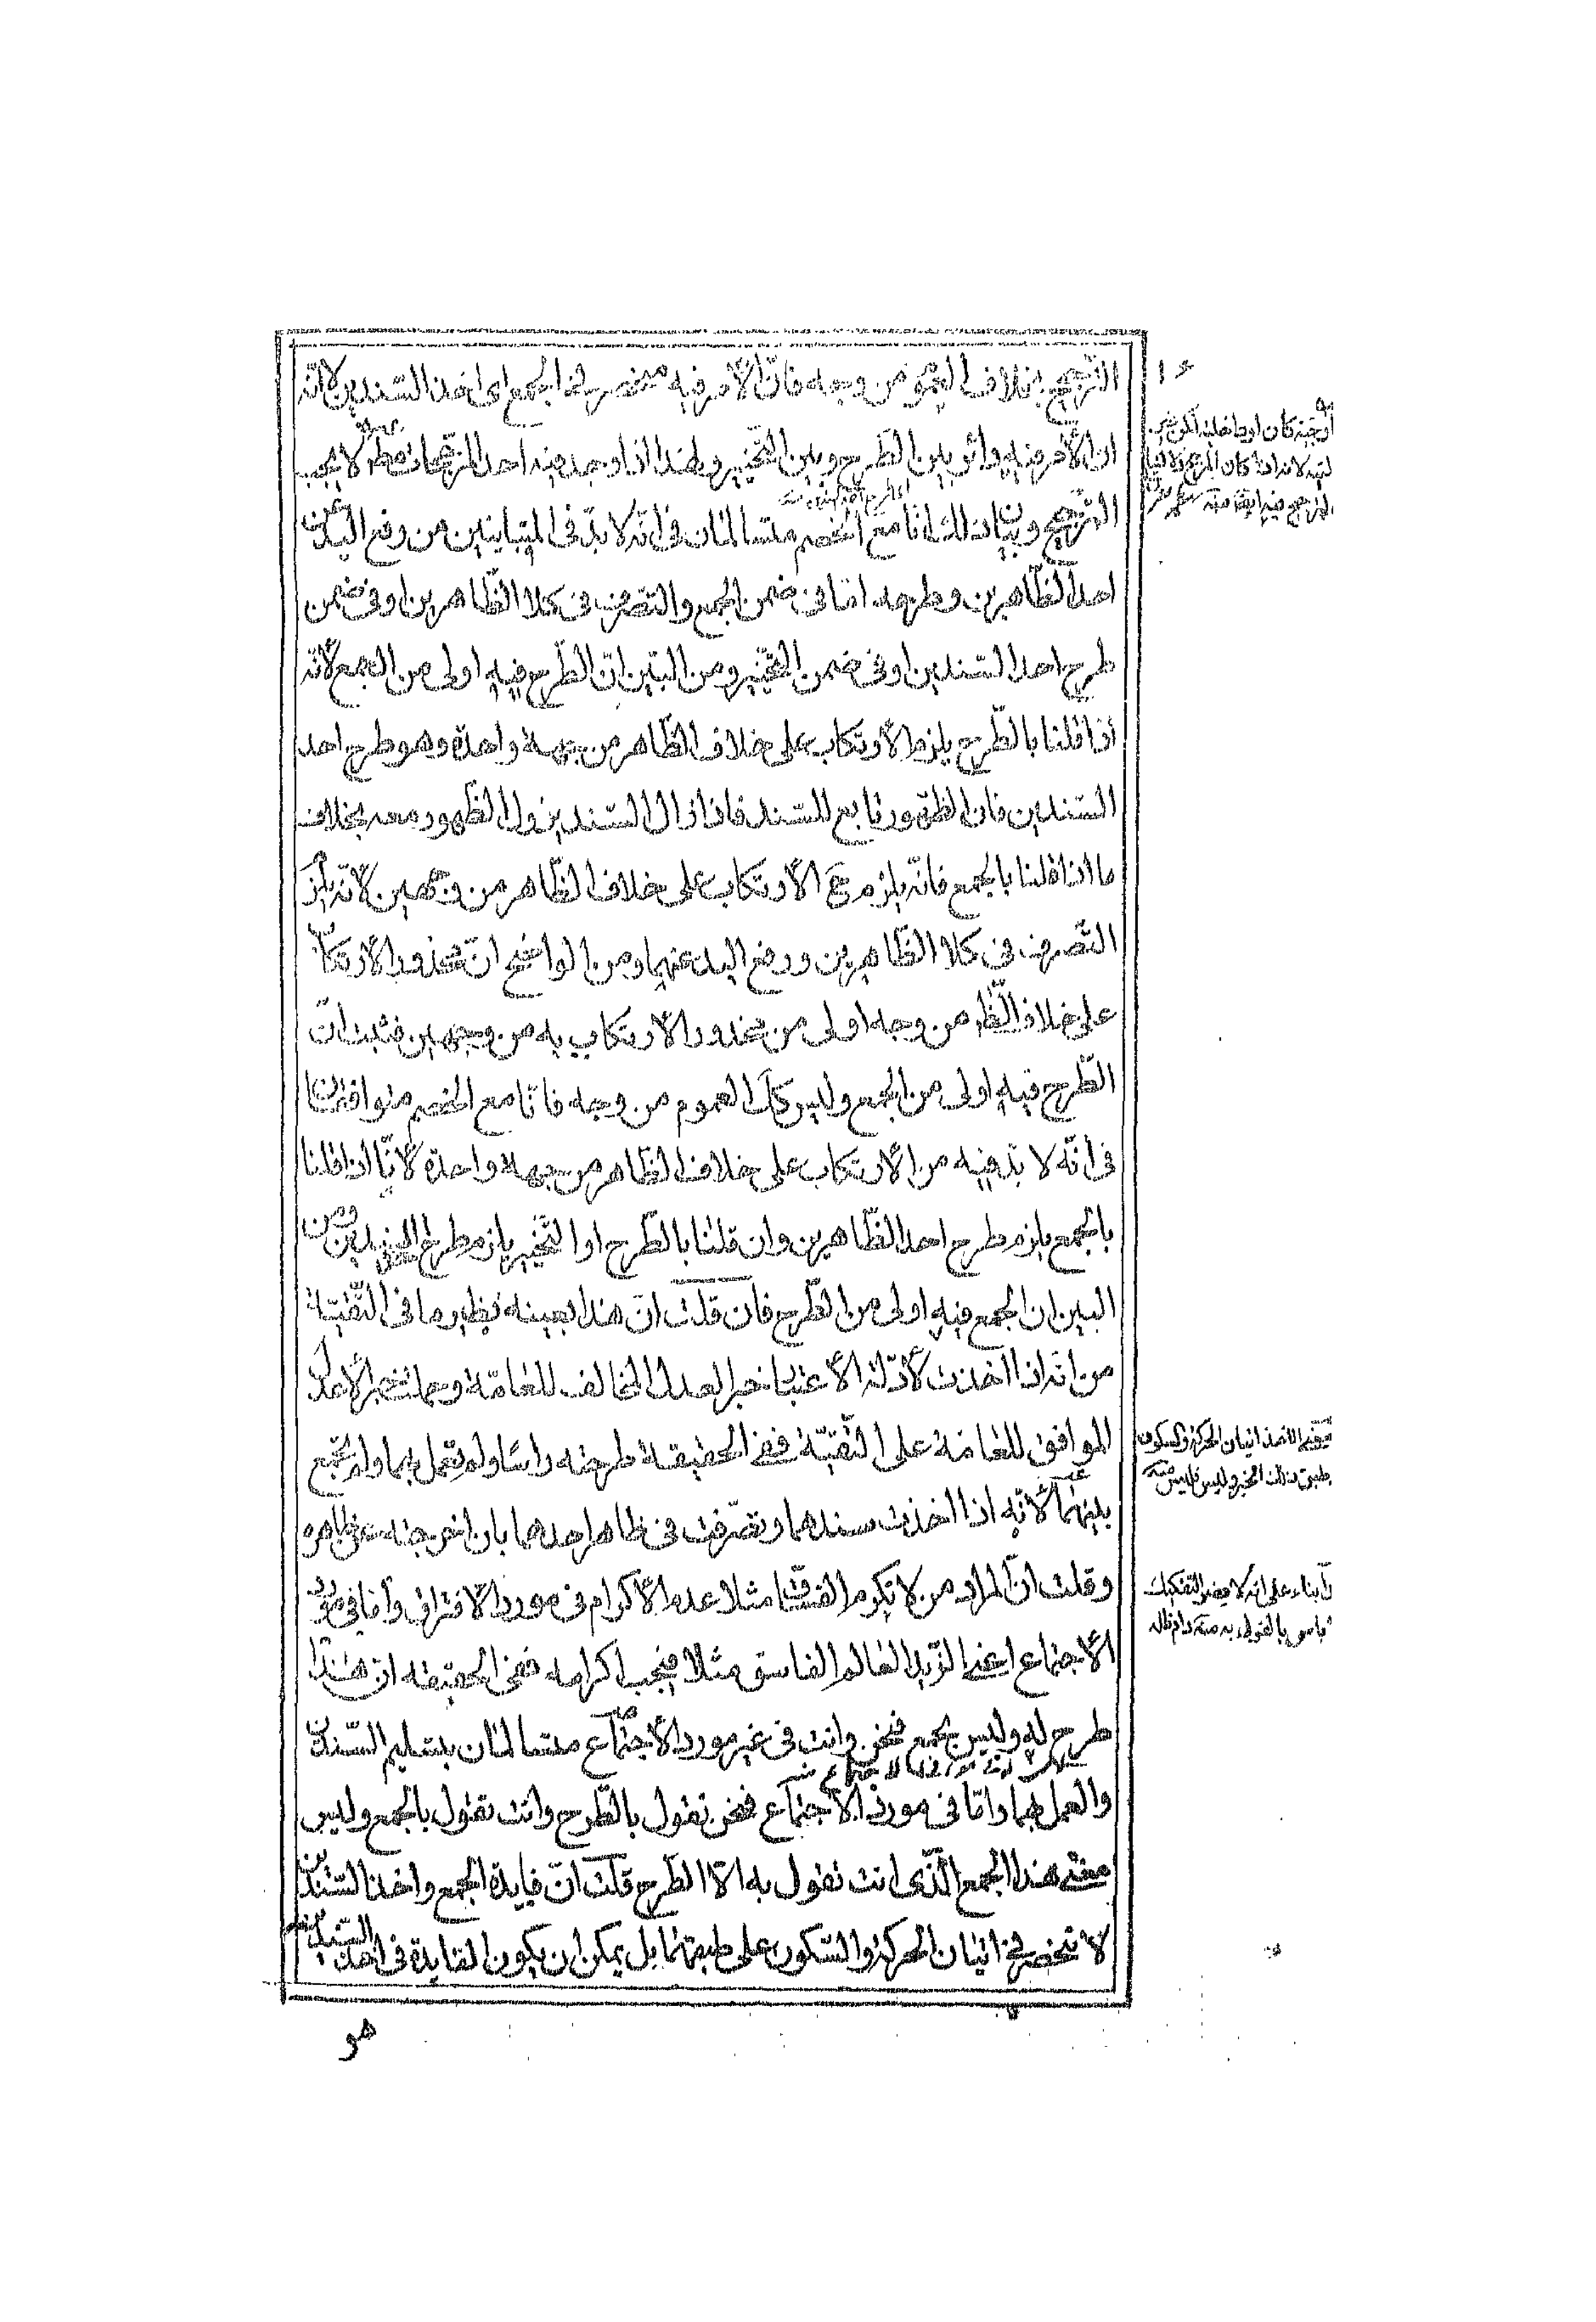 الترجيح بخلاف العموم من وجه فان الأمر فيه منحصر في الجمع اى اخذ السندين لانه
ان الأمر فيه دائر بين الطرح وبين التخيير ولهذا اذا وجد فيه احد المرجحات لا يجب
الترجيح وبيان ذلك انا مع الخصم متسالمان فى انه لا بد فى المتباينين من رفع اليد عن
احد الظاهرين وطرحه اما فى ضمن الجمع والتصرف فى كلا الظاهرين او فى ضمن
طرح احد السندين او فى ضمن التخيير ومن البين ان الطرح فيه اولى من الجمع لأنه
اذا قلنا بالطرح يلزم الأرتكاب على خلاف الظاهر من جهة واحدة وهو طرح احد
السندين فان الظهور تابع للسند فاذا زال السند يزول الظهور معه بخلاف
ما اذا قلنا بالجمع فانه يلزم ح الأرتكاب على خلاف الظاهر من وجهين لأنه يلزم
التصرف فى كلا الظاهرين ورفع اليد عنهما ومن الواضح ان محذور الأرتكاب
على خلاف الظ من وجه اولى من محذور الارتكاب به من وجهين فثبت ان
الطرح فيه اولى من الجمع وليس كك العموم من وجه فانا مع الخصم متوافقان
فى انه لا بد فيه من الأرتكاب على خلاف الظاهر من جهة واحدة لأنا اذا قلنا
بالجمع يلزم طرح احد الظاهرين وان قلنا بالطرح او التخيير يلزم طرح السندين ومن
البين ان الجمع فيه اولى من الطرح فان قلت ان هذا بعينه نظير ما فى التقية
من انه اذا اخذت لأدلة الأعتبار خبر العدل المخالف للعامة وحملت خبر الأعدل
الموافق للعامة على التقية ففى الحقيقة طرحته راسا ولم تعمل بهما ولم تجمع
بينهما لأنه اذا اخذت سندهما وتصرفت فى ظاهر احدهما بان اخرجته عن ظاهره
وقلت ان المراد من لا تكرم الفساق مثلا عدم الأكرام فى مورد الافتراق واما فى مورد
الأجتماع اعنى الزيد العالم الفاسق مثلا فيجب اكرامه ففى الحقيقه ان هذا
طرح له وليس بجمع فنحن وانت فى غير مورد الأجتماع متسالمان بتسليم السندين
والعمل بهما واما فى مورد الأجتماع فنحن نقول بالطرح وانت تقول بالجمع وليس
معنى هذا الجمع الذى انت تقول به الا الطرح قلت ان فايدة الجمع واخذ السندين
لا تنحصر فى اتيان الحركة والسكون على طبقهما بل يمكن ان يكون الفايدة فى اخذ السندين
هو